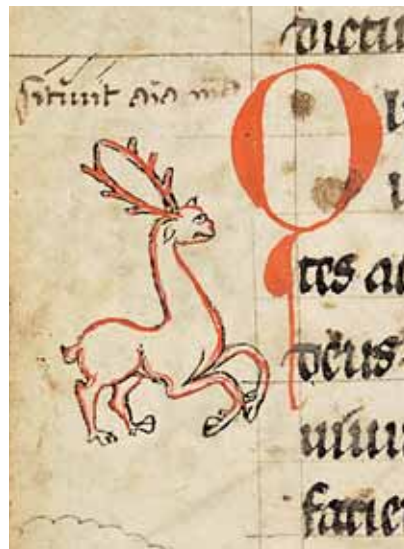 dictu
Sitiuit aīa mea
Q
tes a
deus
uiuu
facie